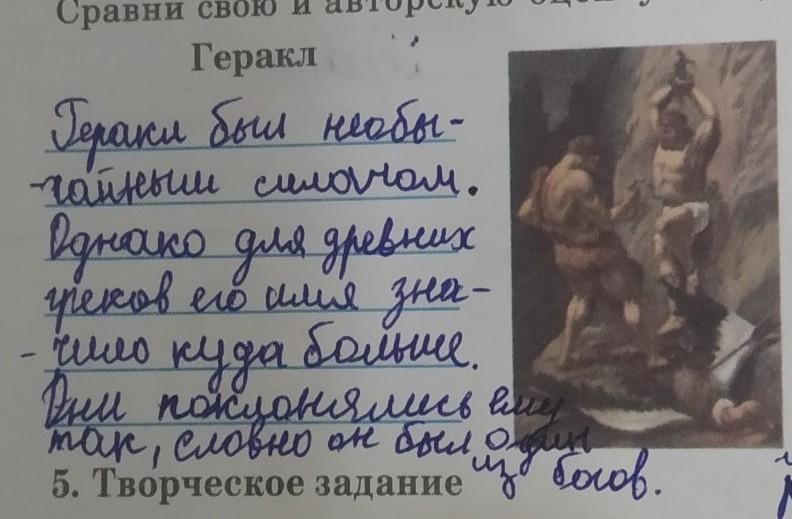 Сравни свою и авторскую оценку
Геракл
Геракл был необы-
-чайным силачом.
Однако для древних
греков его имя зна-
-чило куда больше.
Они поклонялись ему
так, словно он был один
из богов.
5. Творческое задание